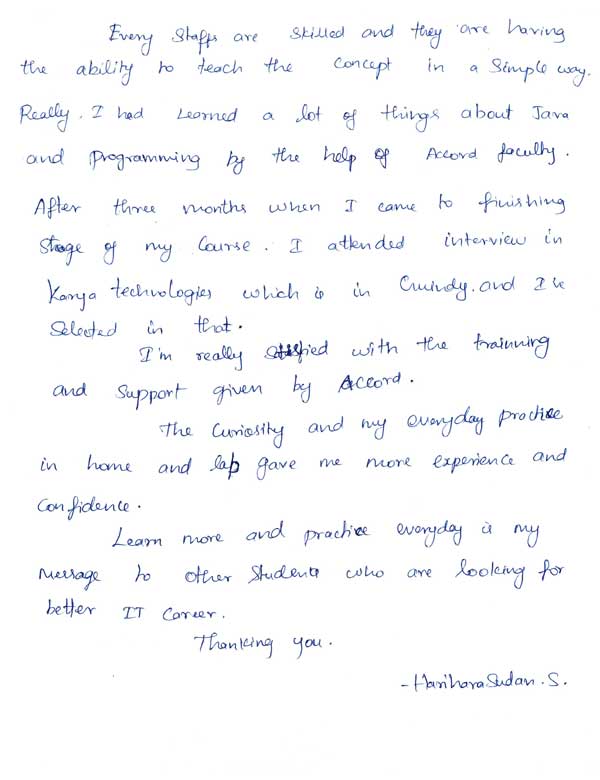 Every Staffs are skilled and they are having
the ability to teach the concept in a simple way.
Really. I had Learned a lot of things about Java
and programming by the help of Accord faculty.
After three months when I came to finishing
stage of my course. I attended interview in
Kanya technologies which is in Guindy. and I've
Selected in that.
I'm really satisfied with the trainning
and support given by Accord.
The Curiosity and my everyday practice
in home and lab gave me more experience and
confidence.
Learn more and practice everyday is my
message to other students who are looking for
better IT career.
Thanking you.
- Hariharasudan. S.